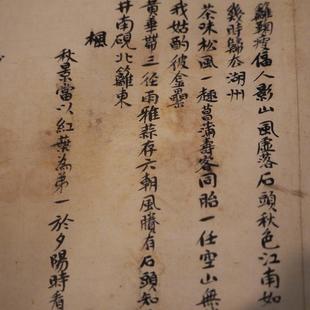 籬鞠瘦偪人影山風虛落石頭秋色江南如
幾時歸於湖州
茶味松風一極菖蒲壽客同胎一任空山無
我姑酌彼金罍
黃華帶三徑雨雅蒜存六朝風賸有石頭知
井南硯北籬東
楓
秋景當以紅葉為第一於夕陽時看